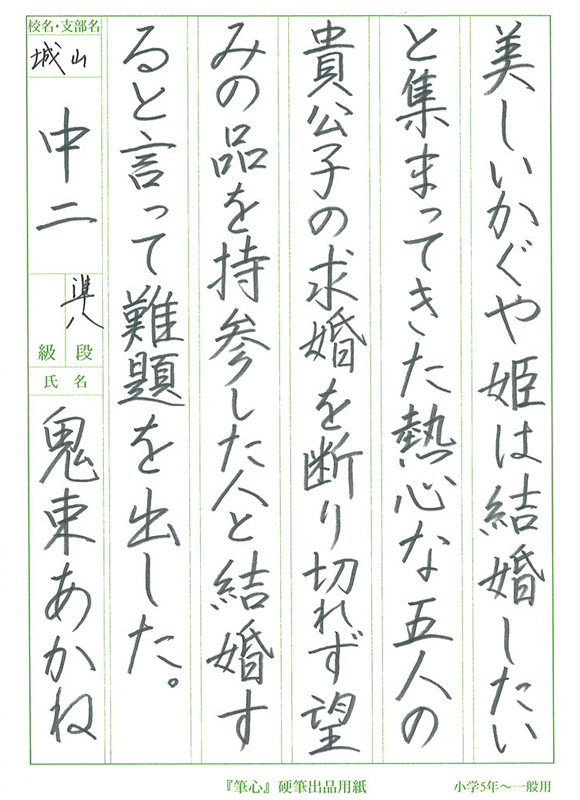 美しいかぐや姫は結婚したい
と集まってきた熱心な五人の
貴公子の求婚を断り切れず望
みの品を持参した人と結婚す
ると言って難題を出した。
校名・支部名
城山
中二
準八
級 段
氏名
鬼束あかね
『筆心』硬筆出品用紙
小学5年〜一般用